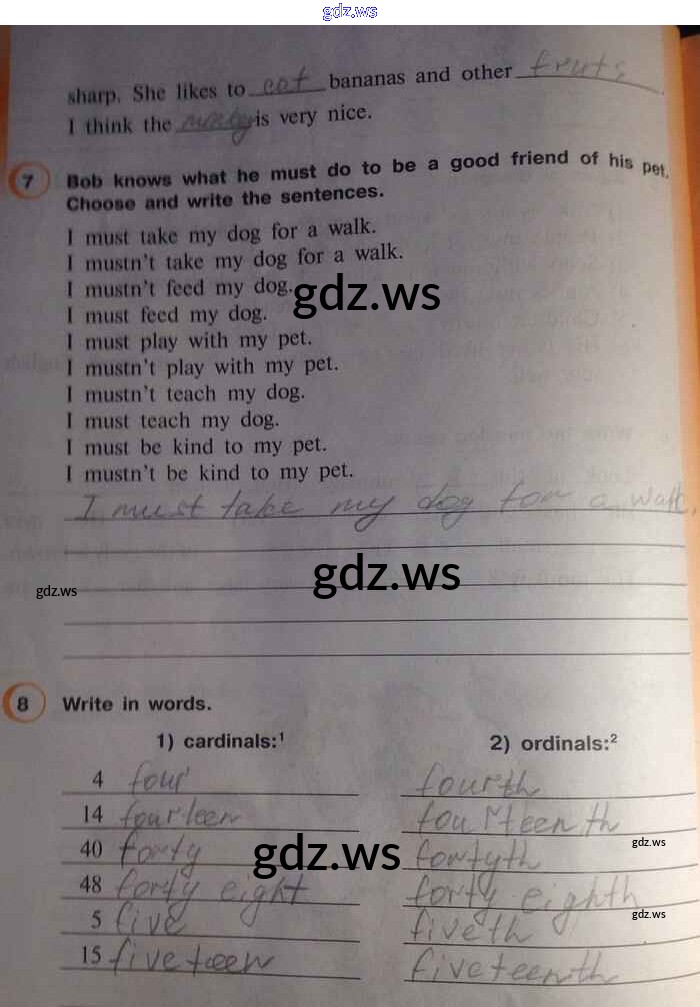 gdz.ws
sharp. She likes to eat bananas and other fruits.
I think the is very nice.
7 Bob knows what he must do to be a good friend of his pet.
Choose and write the sentences.
I must take my dog for a walk.
I mustn't take my dog for a walk.
I mustn't feed my dog.
gdz.ws
I must feed my dog.
I must play with my pet.
I mustn't play with my pet.
I mustn't teach my dog.
I must teach my dog.
I must be kind to my pet.
I mustn't be kind to my pet.
I must take my dog for a walk.
gdz.ws
gdz.ws
8 Write in words.
1) cardinals:¹ 2) ordinals:²
4 four fourth
14 fourteen fourteenth
gdz.ws
40 forty fortyth
gdz.ws
48 forty eight forty eighth
gdz.ws
5 five fiveth
15 fiveteen fiveteenth